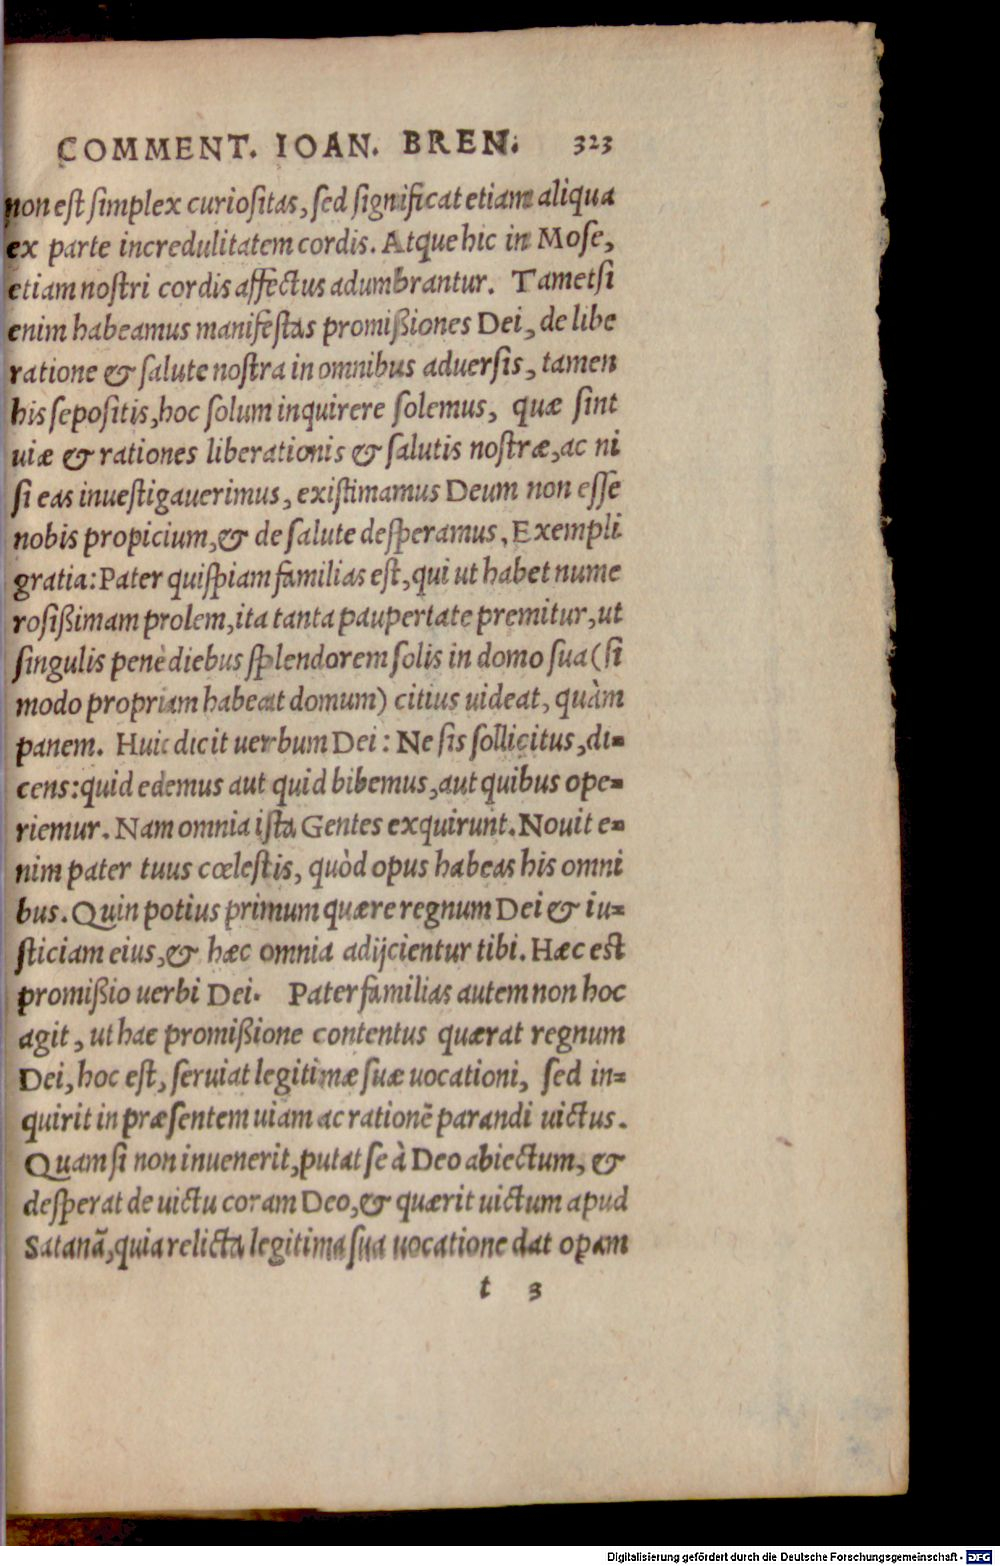 COMMENT. IOAN. BREN. 323
non est simplex curiositas, sed significat etiam aliqua
ex parte incredulitatem cordis. Atque hic in Mose,
etiam nostri cordis affectus adumbrantur. Tametsi
enim habeamus manifestas promißiones Dei, de libe
ratione & salute nostra in omnibus aduersis, tamen
his sepositis, hoc solum inquirere solemus, quæ sint
uiæ & rationes liberationis & salutis nostræ, ac ni
si eas inuestigauerimus, existimamus Deum non esse
nobis propicium, & de salute desperamus. Exempli
gratia: Pater quispiam familias est, qui ut habet nume
rosißimam prolem, ita tanta paupertate premitur, ut
singulis penè diebus splendorem solis in domo sua (si
modo propriam habeat domum) citius uideat, quàm
panem. Huic dicit uerbum Dei: Ne sis sollicitus, di-
cens: quid edemus aut quid bibemus, aut quibus ope-
riemur. Nam omnia ista Gentes exquirunt. Nouit e-
nim pater tuus cœlestis, quòd opus habeas his omni
bus. Quin potius primum quære regnum Dei & iu-
sticiam eius, & hæc omnia adijcientur tibi. Hæc est
promißio uerbi Dei. Paterfamilias autem non hoc
agit, ut hac promißione contentus quærat regnum
Dei, hoc est, seruiat legitimæ suæ uocationi, sed in-
quirit in præsentem uiam ac rationē parandi uictus.
Quam si non inuenerit, putat se à Deo abiectum, &
desperat de uictu coram Deo, & quærit uictum apud
Satanā, quia relicta legitima sua uocatione dat opam
t 3
Digitalisierung gefördert durch die Deutsche Forschungsgemeinschaft - DFG